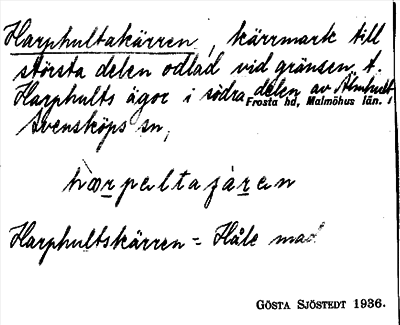 Harphultakärren, kärrmark till
största delen odlad vid gränsen t.
Harphults ägor i södra delen av Älmhult
Frosta hd, Malmöhus län.
Svensköps sn,
hærpeltaʒaren
Harphultskärren = Håle mad
GÖSTA SJÖSTEDT 1936.